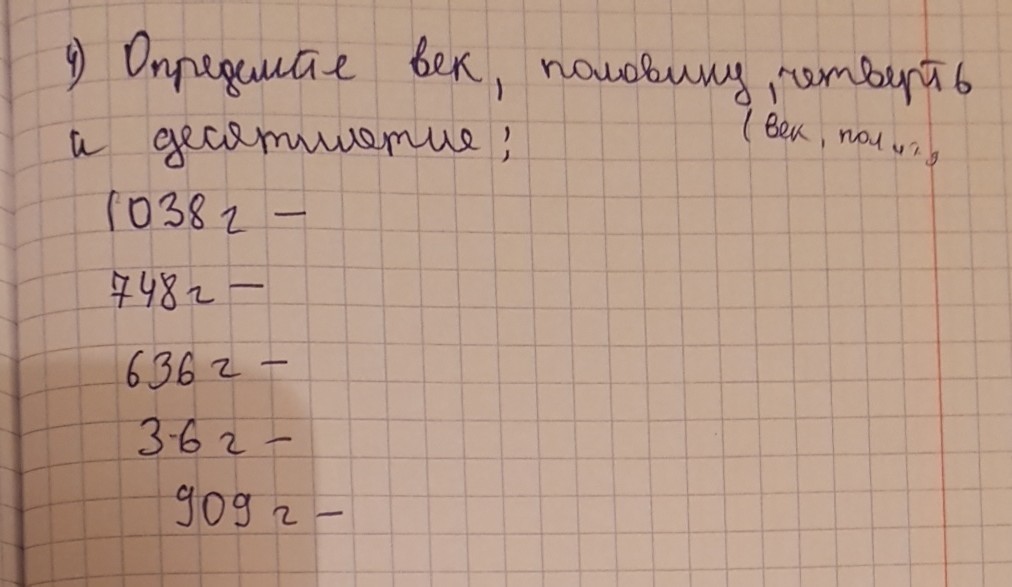 4) Определите век, половину, четверть
и десятилетие; (век, пол, ч.,
1038 г –
748 г –
636 г –
3-6 г –
909 г –